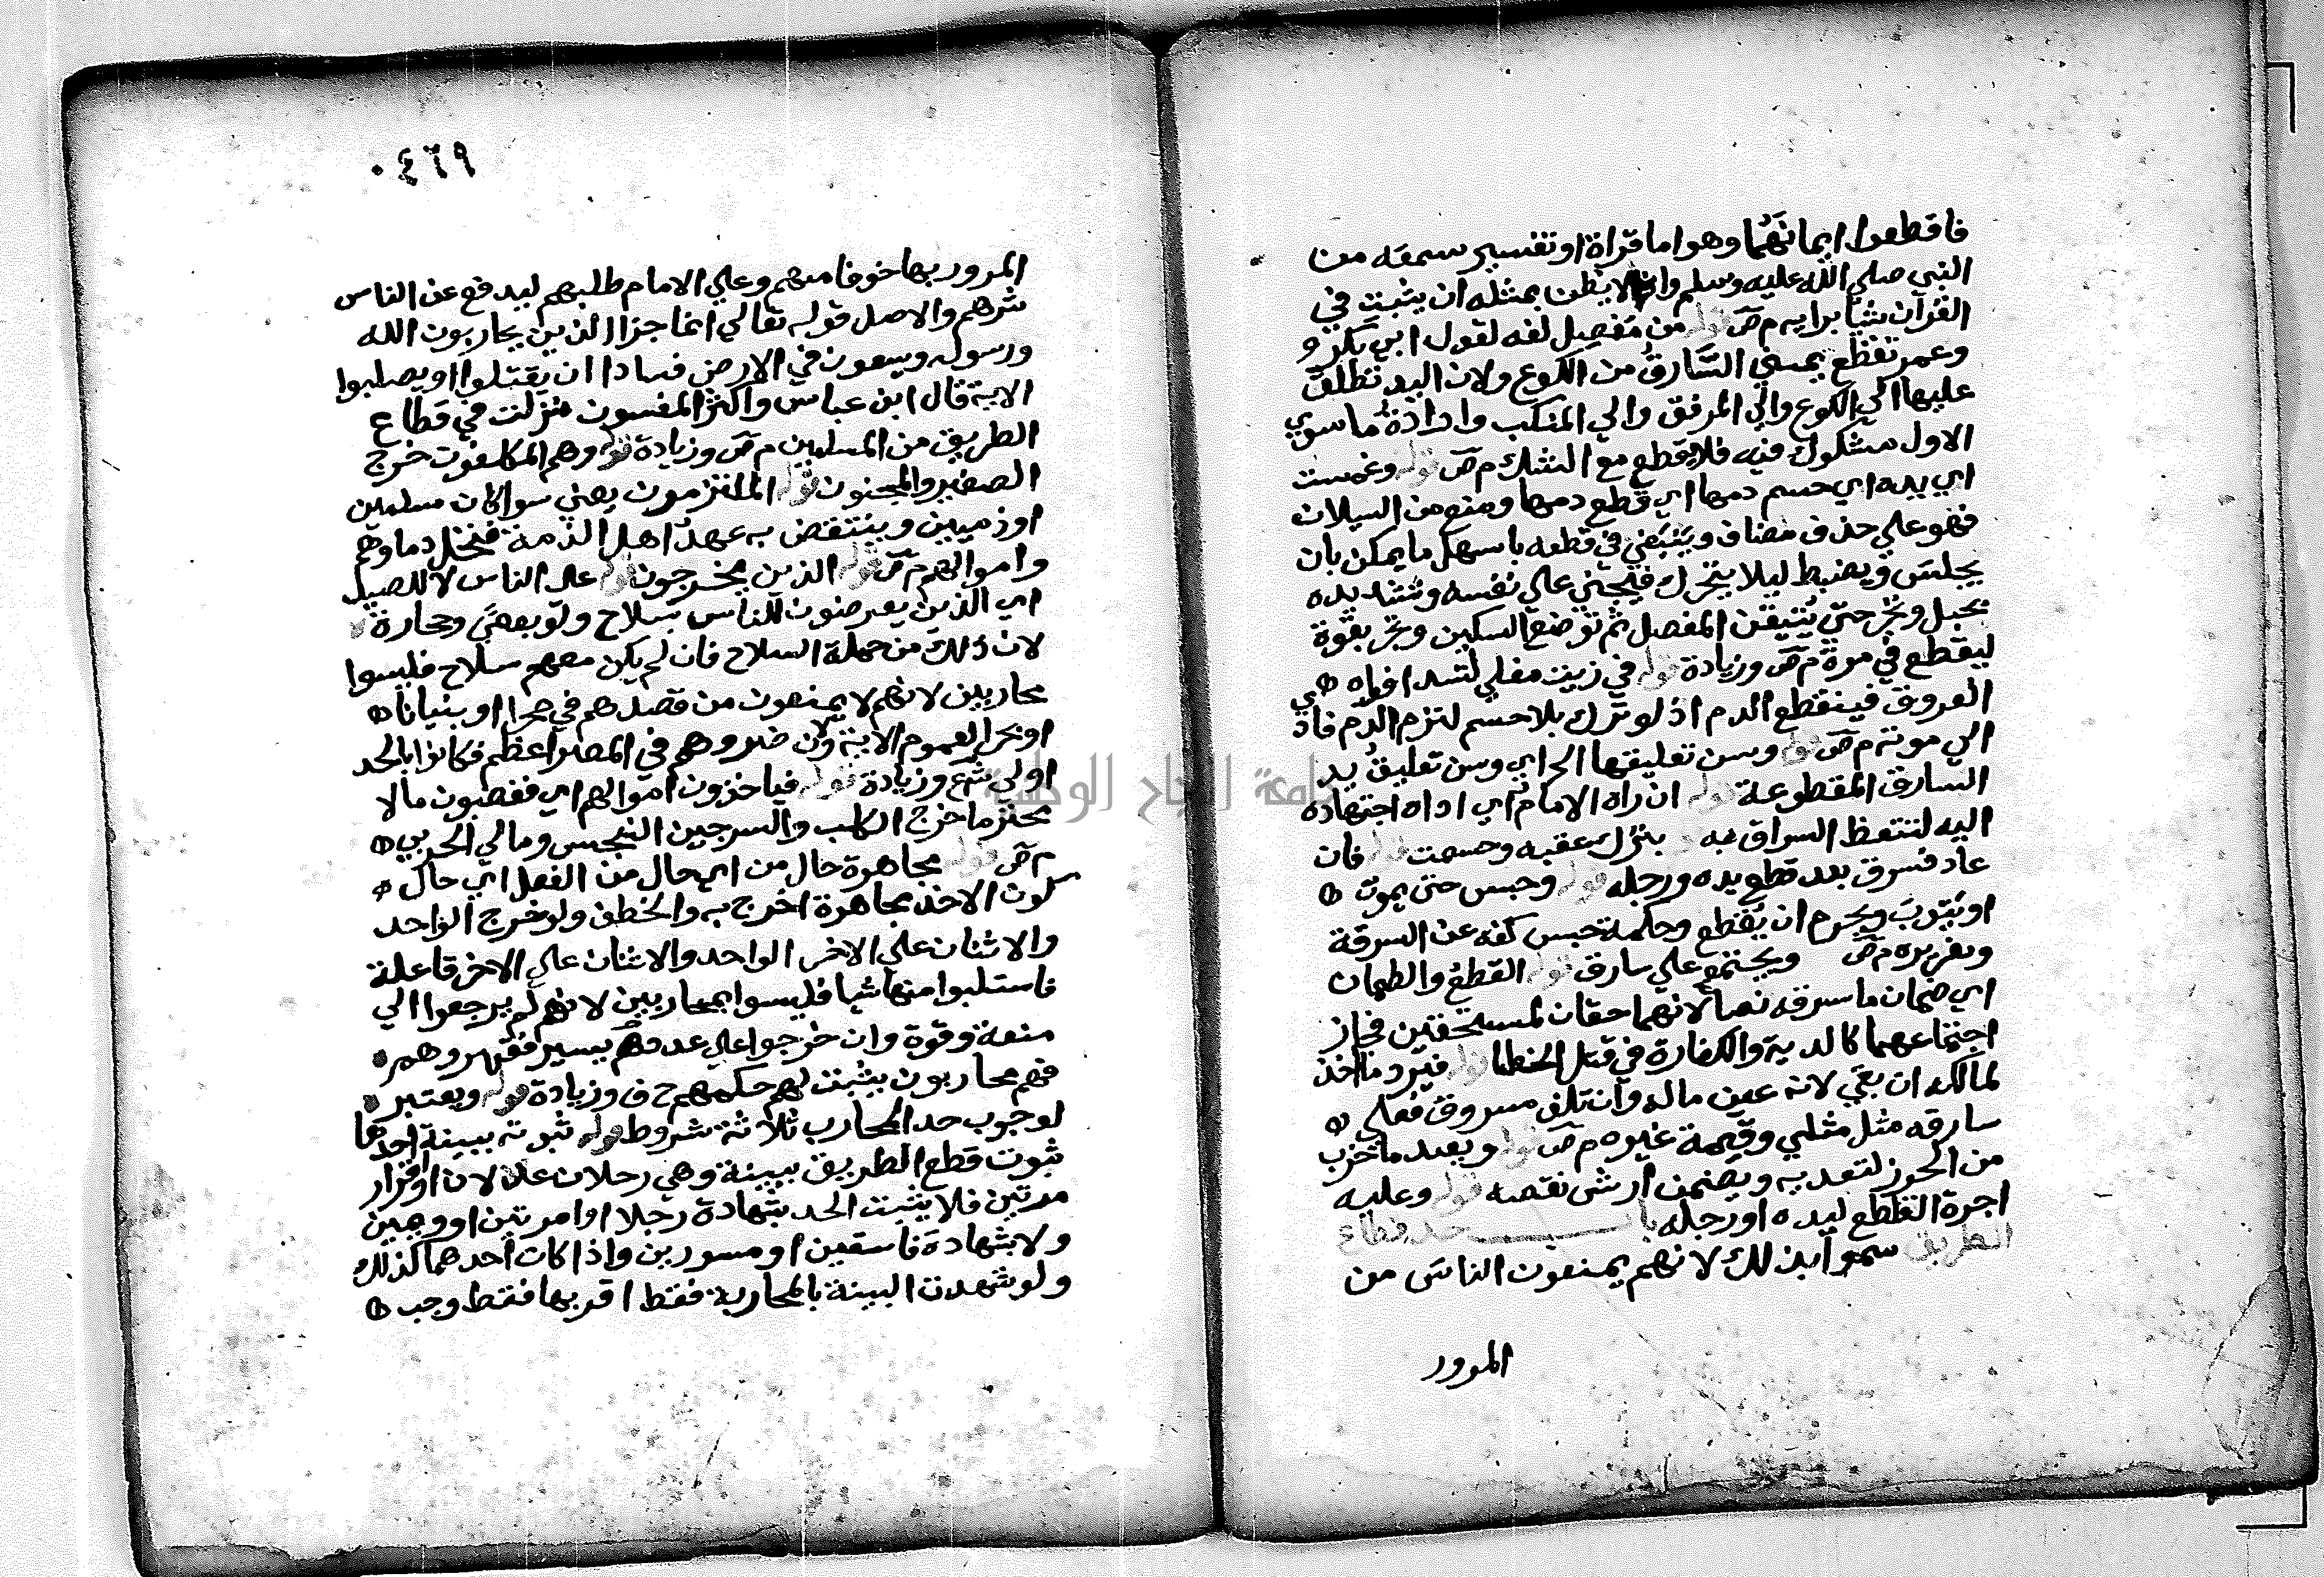 فاقطعوا ايمانهما وهو اما قراة او تفسير سمعه من
النبي صلي الله عليه وسلم واذ لا يظن بمثله ان يثبت في
القرآن شيا برايه م ص قوله من مفصل لفه لقول ابي بكر و
وعمر تقطع يمين السارق من الكوع ولان اليد تطلق
عليها الي الكوع والي المرفق والي المنكب وارادة ما سوي
الاول مشكوك فيه فلا يقطع مع الشك م ص قوله وغمست
اي يده اي حسم دمها اي قطع دمها ومنع من السيلان
فهو علي حذف مضاف وينبغي في قطعه باسهل ما يمكن بان
يجلس ويضبط ليلا يتحرك فيجني علي نفسه وتشد يده
بحبل وتجر حتي يتيقن المفصل ثم توضع السكين وتجر بقوة
ليقطع في مرة م ص وزيادة قوله في زيت مغلي لتسد افواه
العروق فينقطع الدم اذ لو ترك بلا حسم لنزم الدم فاد
الي موته م ص قوله وسن تعليقها الخ اي وسن تعليق يد
السارق المقطوعة قوله ان راه الامام اي اداه اجتهاده
اليه لتتعظ السراق به قوله بترك عقبه وحسمت قوله فان
عاد فسرق بعد قطع يده ورجله قوله وحبس حتي يموت
او يتوب ويحرم ان يقطع وحكمة حبس كفه عن السرقة
وتعزيره م ص ويجتمع علي سارق قوله القطع والظمان
اي ضمان ما سرقه نصا لانهما حقان لمستحقين فجاز
اجتماعهما كالدية والكفارة في قتل الخطا قوله فيرد ما اخذ
لمالكه ان بقي لانه عين ماله وان تلف مسروق فعلي
سارقه مثل مثلي وقيمة غيره م ص قوله ويعيد ما خرب
من الحرز لتعديه ويضمن ارش نقصه قوله وعليه
اجرة القطع ليده او رجله باب حد قطاع
الطريق سموا بذلك لانهم يمنعون الناس من
المرور
٠٤٦٩
المرور بها خوفا منهم وعلي الامام طلبهم ليدفع عن الناس
شرهم والاصل قوله تعالي انما جزا الذين يحاربون الله
ورسوله ويسعون في الارض فسادا ان يقتلوا او يصلبوا
الاية قال ابن عباس واكثر المفسرون نزلت في قطاع
الطريق من المسلمين م ص وزيادة قوله وهم المكلفون خرج
الصغير والمجنون قوله الملتزمون يعني سوا كان مسلمين
او ذميين وينتقض به عهد اهل الذمة فتحل دماوهم
واموالهم م ص قوله الذين يخرجون قوله علي الناس لا للصيد
اي الذين يعرضون للناس بسلاح ولو بعصي وحجارة
لان ذلك من جملة السلاح فان لم يكن معهم سلاح فليسوا
محاربين لانهم لا يمنعون من قصدهم في صحرا او بنيانا
او بحر لعموم الاية ولان ضروهم في المصر اعظم فكانوا بالحد
اولي ش ع وزيادة قوله فياخذون اموالهم اي فغصبون مالا
محترما خرج الكلب والسرجين النجس ومالي الحربي
م ص قوله مجاهرة حال من اي حال من الفعل اي حال
كون الاخذ مجاهرة اخرج به والخطف ولو خرج الواحد
والاثنان علي الاخر الواحد والاثنان علي الاخر قاعلة
فاستلبوا منها شيا فليسوا بمحاربين لانهم لم يرجعوا الي
منعة وقوة وان خرجوا علي عددهم يسير فقهروهم
فهم محاربون يثبت لهم حكمهم ح ف وزيادة قوله ويعتبر
لوجوب حد المحارب ثلاثة شروط قوله ثبوته ببينة احدها
ثبوت قطع الطريق ببينة وهي رجلان عدلان او اقرار
مرتين فلا يثبت الحد بشهادة رجلا او امرتين او وجهين
ولا بشهادة فاسقين او مستورين واذا كان احدهما كذلك
ولو شهدت البينة بالمحاربة فقط اقر بها فقط وجب